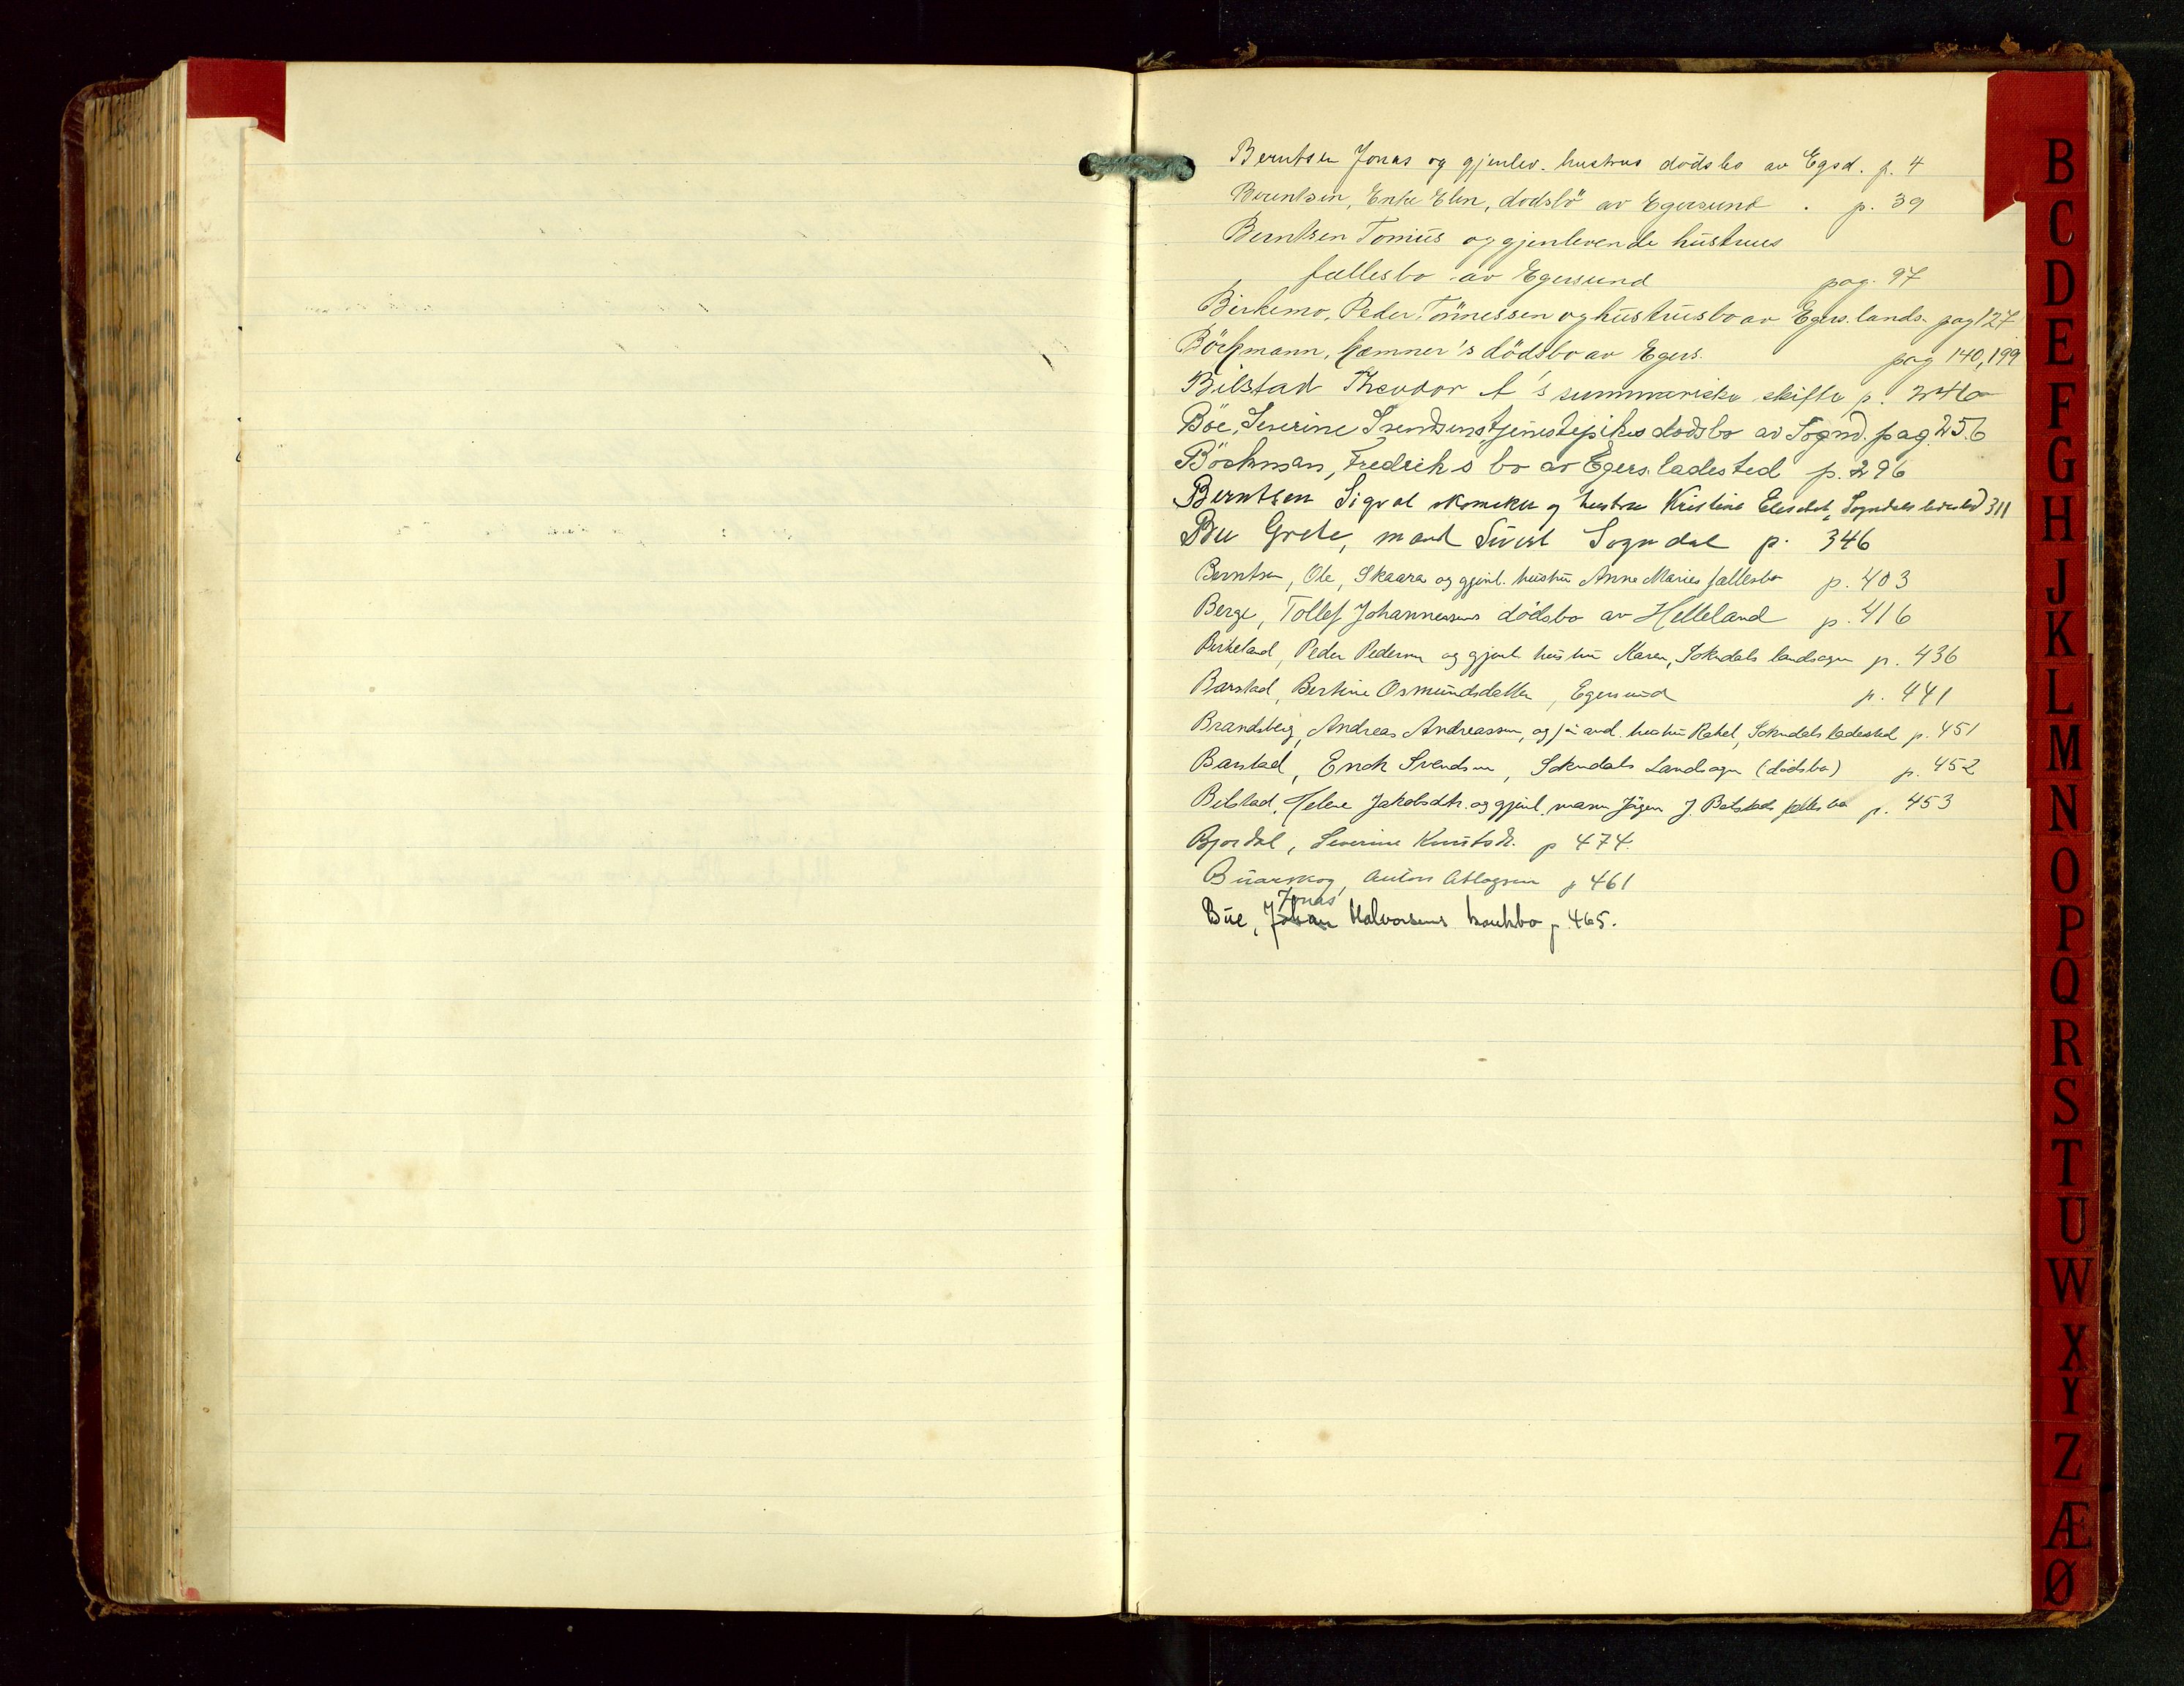 Berntsen Jonas og gjenlev. hustrus dödsbo av Egsd. p. 4
Berentsen, Enke Elen, dödsbö av Egersund . p. 39
Berntsen Tomüs og gjenlevende hüstrues
fællesbo av Egersund pag. 97
Birkemo, Peder Tönnessen og hüstrüs bo av Egers. lands. pag 127
Böckmann, kæmner's dödsbo av Egers. pag 140, 199
Bilstad Theodor A's summariske skifte p. 246
Böe, Severine Svendsens tjenestepikes dødsbo av Sognd. pag. 256
Böckman, Fredrik s bo av Egers. ladested p. 296
Berntsen Sigval skomaker og hustru Kristine Elisabet, Sogndals ladested 311
Bu Grete, mand Sivert Sogndal p. 346
Berntsen, Ole, Skaara og gjenl. hüstrü Anne Maries fællesbo p. 403
Berge, Tollef Johannessens dödsbo av Helleland p. 416
Birkeland, Peder Pedersen og gjenl. hüstrü Karen, Sokndals landsogn p. 436
Barstad, Bertine Osmündsdatter, Egersund p. 441
Brandsberg, Andreas Andreassen, og hüstrü Rakel, Sokndals ladested p. 451
Barstad, Enok Svendsen, Sokndals Landsogn (dödsbo) p. 452
Bilstad, Helene Jakobsdtr. og gjenl. mann Jörgen J. Bilstads fellesbo p. 453
Bjordal, Severine Knütsdt. p 474.
Büarskog, Anton Atlagsen p 461
Jonas
Büe, Johan Halvorsens konkbo p. 465.
B
C
D
E
F
G
H
J
K
L
M
N
O
P
Q
R
S
T
U
W
X
Y
Z
Æ
Ø